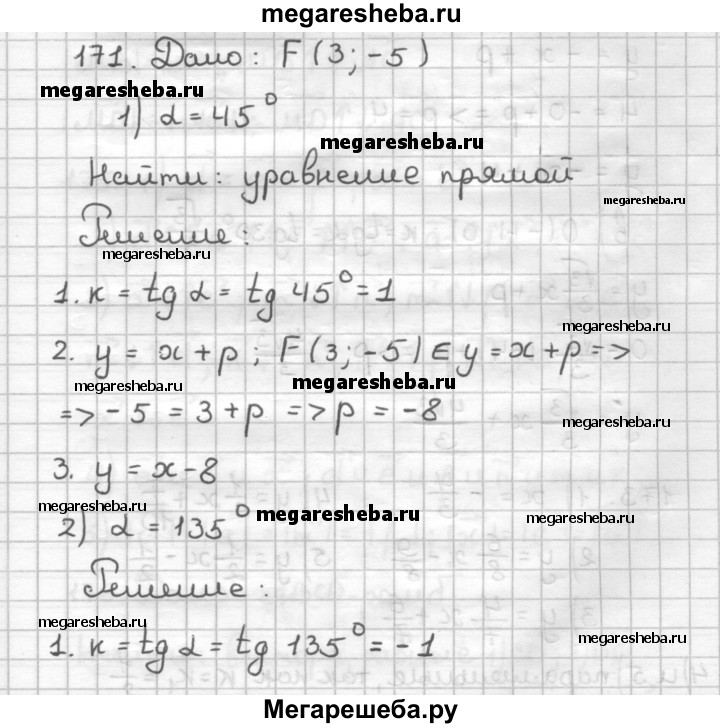 megaresheba.ru
171. Дано: F(3;-5)
megaresheba.ru
1) α = 45°
megaresheba.ru
Найти: уравнение прямой
megaresheba.ru
Решение:
megaresheba.ru
1. к = tg α = tg 45° = 1
megaresheba.ru
2. y = x + p ; F(3;-5) ∈ y = x + p =>
megaresheba.ru megaresheba.ru
=> -5 = 3 + p => p = -8
megaresheba.ru
3. y = x - 8
megaresheba.ru megaresheba.ru megaresheba.ru
2) α = 135°
Решение:
megaresheba.ru
1. к = tg α = tg 135° = -1
megaresheba.ru
Мегарешеба.ру